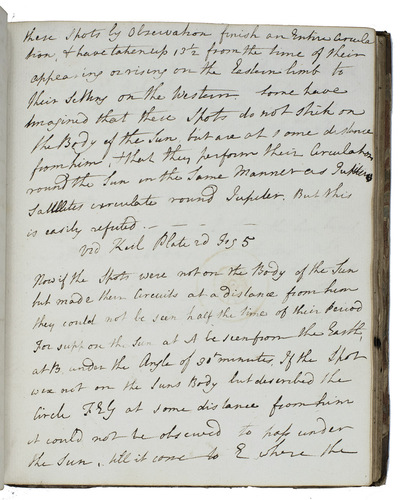 these Spots by Observation finish an Entire Circula
tion, & have taken up 13½ from the time of their
appearing or rising on the Eastern limb to
their Setting on the Western. Some have
imagined that these Spots do not stick on
the Body of the Sun, but are at some distance
from him, & that they perform their Circulation
round the Sun in the Same Manner as Jupiters
Satellites circulate round Jupiter. But this
is easily refuted
Vid Keil Plate 2d Fig 5
Now if the Spots were not on the Body of the Sun
but made their Circuits at a distance from him
they could not be seen half the time of their Period
For suppose the Sun at A be seen from the Earth,
at B under the Angle of 30 minutes. If the Spot
were not on the Suns Body but described the
Circle FEG at some distance from him
it could not be observed to pass under
the Sun, till it come to E where the